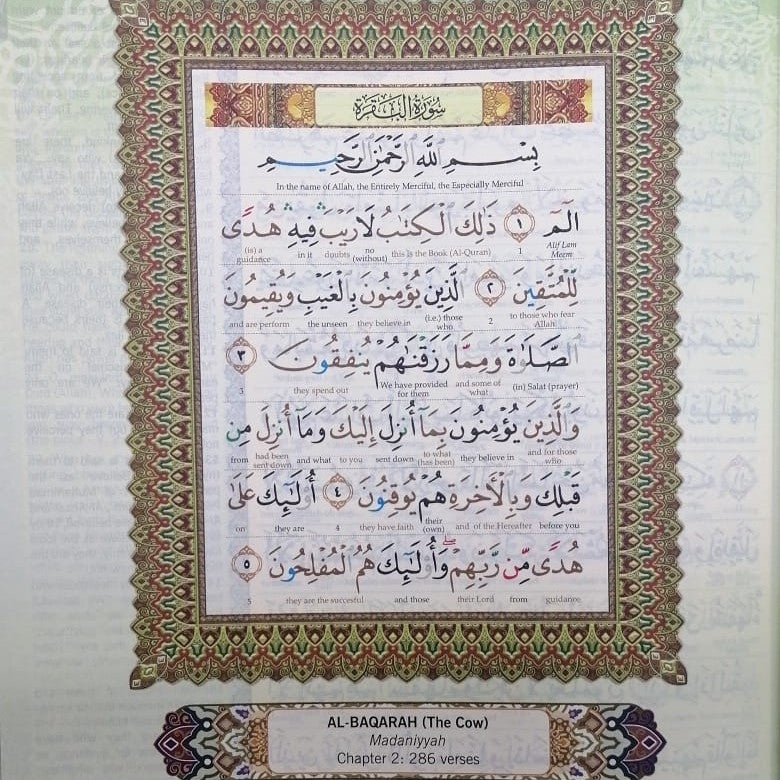 سُورَةُ الْبَقَرَةِ
بِسْمِ اللَّهِ الرَّحْمَٰنِ الرَّحِيمِ
In the name of Allah, the Entirely Merciful, the Especially Merciful
الٓمٓ ١ ذَٰلِكَ الْكِتَابُ لَا رَيْبَ فِيهِ هُدًى
Alif Lam Meem 1 this is the Book (Al-Quran) no (without) doubts in it (is) a guidance
لِّلْمُتَّقِينَ ٢ الَّذِينَ يُؤْمِنُونَ بِالْغَيْبِ وَيُقِيمُونَ
to those who fear Allah 2 (i.e.) those who they believe in the unseen and are perform
الصَّلَاةَ وَمِمَّا رَزَقْنَاهُمْ يُنفِقُونَ ٣
(in) Salat (prayer) and some of what We have provided for them they spend out 3
وَالَّذِينَ يُؤْمِنُونَ بِمَا أُنزِلَ إِلَيْكَ وَمَا أُنزِلَ مِن
and for those who they believe in to what (has been) sent down to you and what had been sent down from
قَبْلِكَ وَبِالْآخِرَةِ هُمْ يُوقِنُونَ ٤ أُولَٰئِكَ عَلَىٰ
before you and of the Hereafter their (own) they have faith 4 they are on
هُدًى مِّن رَّبِّهِمْ ۖ وَأُولَٰئِكَ هُمُ الْمُفْلِحُونَ ٥
guidance from their Lord and those they are the succesful 5
AL-BAQARAH (The Cow)
Madaniyyah
Chapter 2: 286 verses